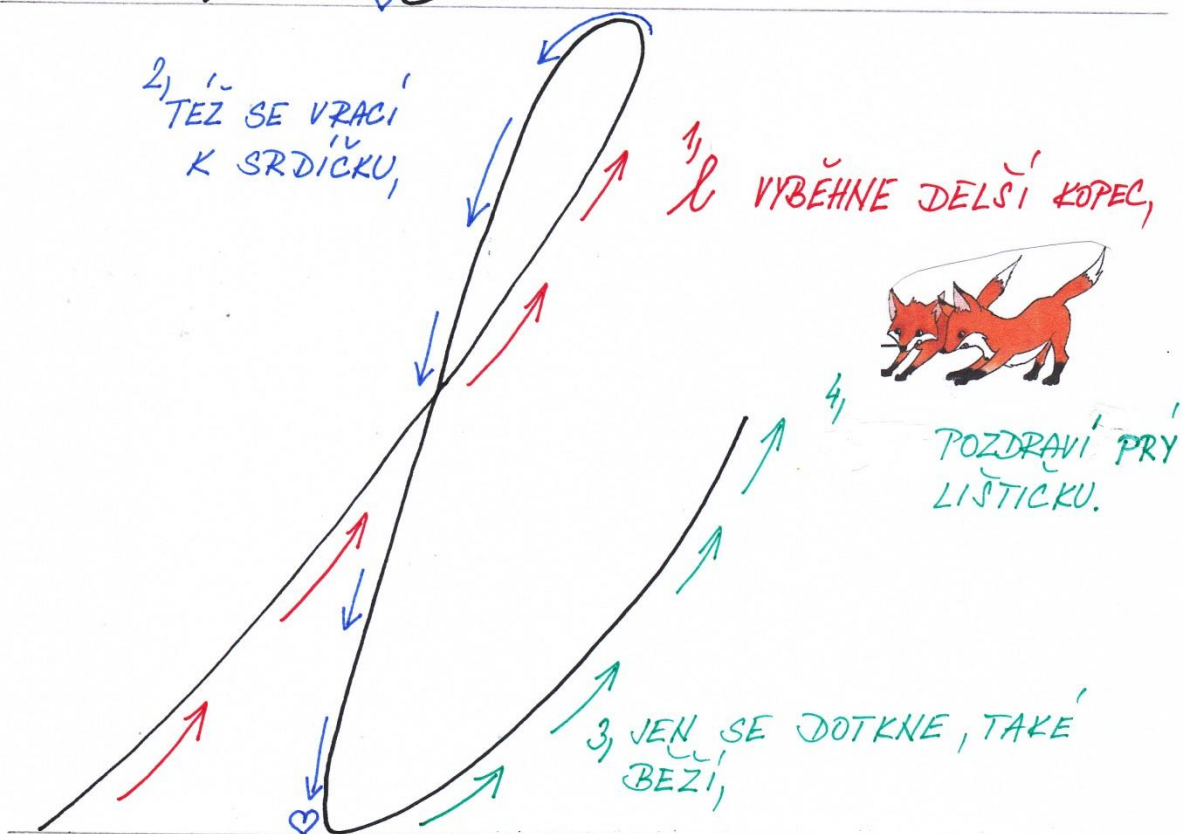 1, l VYBĚHNE DELŠÍ KOPEC,
2, TÉŽ SE VRACÍ
K SRDÍČKU,
3, JEN SE DOTKNE, TAKÉ
BĚŽÍ,
4,
POZDRAVÍ PRÝ
LIŠTIČKU.